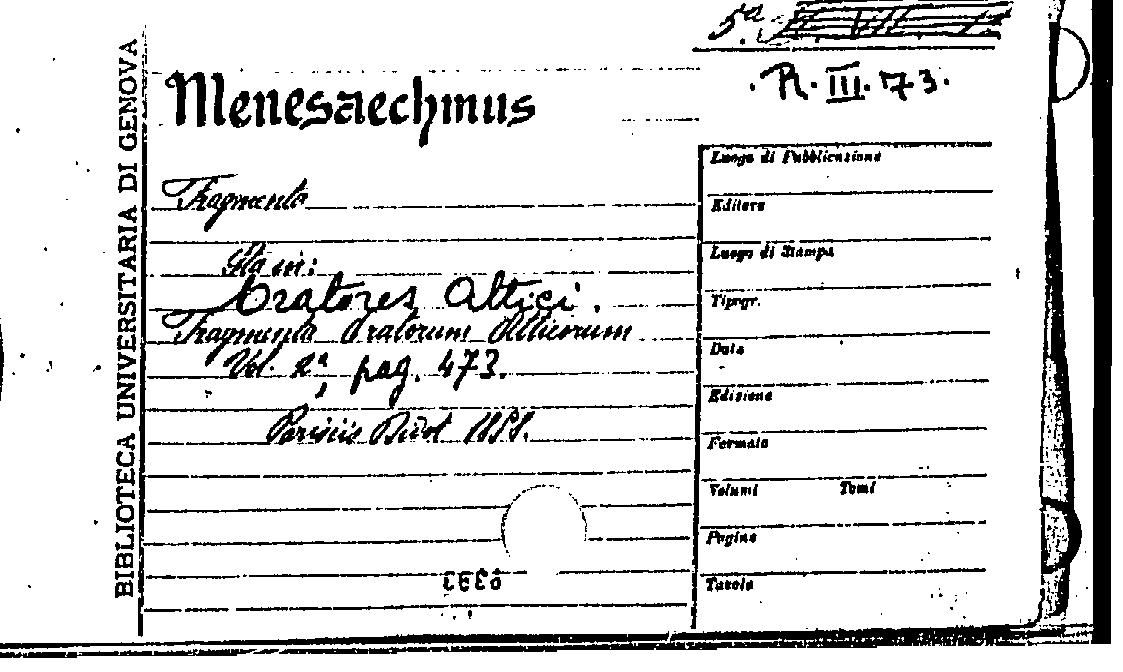 5a
R. III. 73.
BIBLIOTECA UNIVERSITARIA DI GENOVA
Menesaechmus
Fragmenta
Sta in:
Oratores Attici.
Fragmenta Oratorum Atticorum
Vol. 2º, pag. 473.
Parisiis Didot 1858.
Luogo di Pubblicazione
Editore
Luogo di Stampa
Tipogr.
Data
Edizione
Formato
Volumi Tomi
Pagine
Tavole